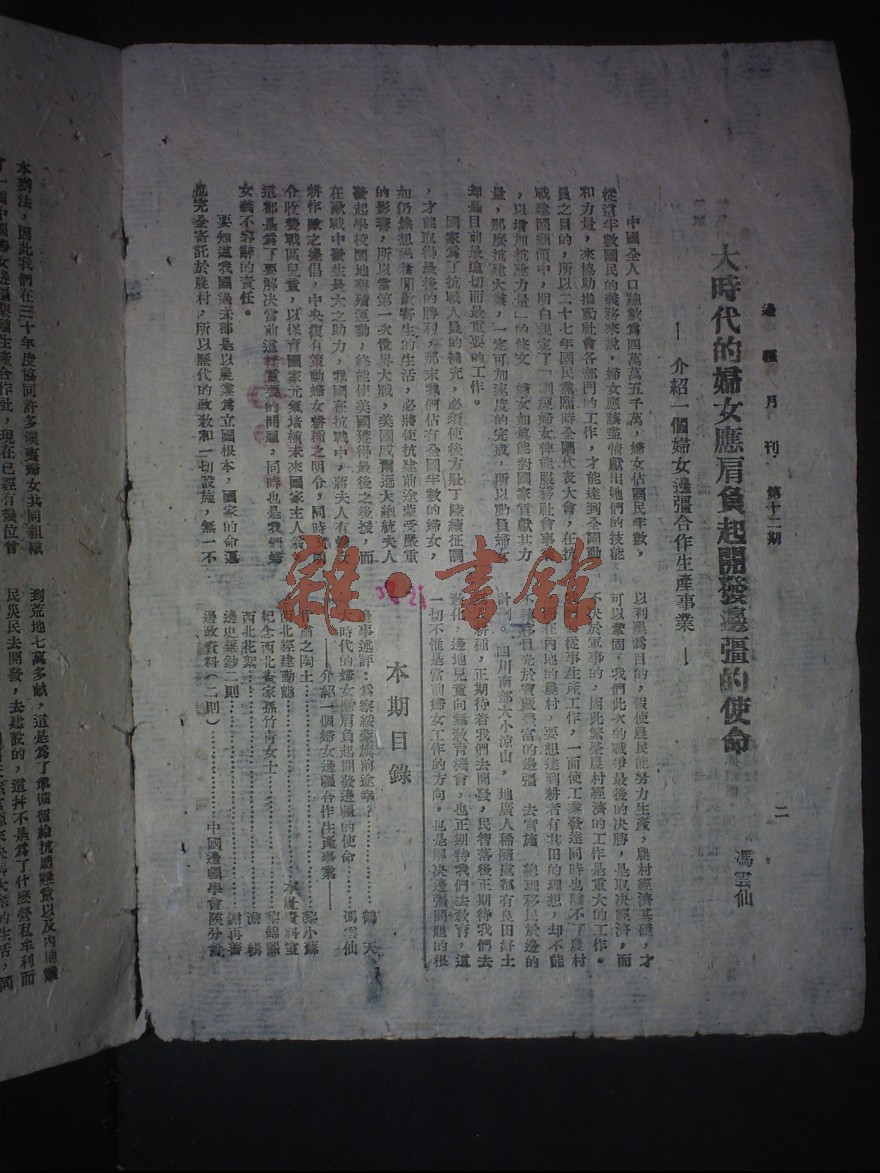 邊疆月刊 第十二期
二
大時代的婦女應肩負起開發邊疆的使命
馮雲仙
— 介紹一個婦女邊疆合作生產事業 —
中國全人口總數爲四萬萬五千萬，婦女佔國民半數，
從這半數國民的義務來說，婦女應該盡情獻出她們的技能
和力量，來協助推動社會各部門的工作，才能達到全國動
員之目的，所以二十七年國民黨臨時全國代表大會，在抗
戰建國綱領中，明白規定了「訓練婦女俾能服務社會事業
，以增加抗建力量」的條文 婦女如眞能對國家貢獻其力
量，那麼抗建大業，一定可加速度的完成，所以動員婦女
却是目前最迫切而最重要的工作。
國家爲了抗戰人員的補充，必須使後方壯丁陸續征調
，才能取得最後的勝利，那末我們佔有全國半數的婦女，
如仍緬想過着閒散寄生的生活，必將使抗建前途蒙受嚴重
的影響，所以當第一次世界大戰，美國威爾遜大總統夫人
發起學校園地墾殖運動，終能使美國獲得最後之後援，而
在歐戰中發生最大之助力，我國在抗戰中，蔣夫人有婦女
耕作隊之提倡，中央復有策動婦女耕種之明令，同時
令收養戰區兒童，以保育國家元氣培植未來國家主人翁
這都是爲了要解决當前這样重要的問題，同時也是我們婦
女義不容辭的責任。
要知道我國過去都是以農業爲立國根本，國家的命運
也完全寄託於農村，所以歷代的政敎和一切設施，無一不
以利農爲目的，假使農民能努力生產，農村經濟基礎，才
可以鞏固。我們此次的戰爭最後的决勝，是取决經濟，而
不决於軍事的，因此繁榮農村經濟的工作是重大的工作。
從事生產工作，一面使工業發達同時也離不了農村
在內地的農村，要想達到耕者有其田的理想，却不能
移民于于寶藏豐富的邊疆 去實施 總理移民於邊的
計劃。四川南部大小涼山，地廣人稀隨處都有良田好土
耕種，正期待着我們去開發，民智落後正期待我們去
化，邊地兒童向無敎育機會，也正期待我們去敎育，這
一切不惟是當前婦女工作的方向，也是解决邊疆問題的根
本期目錄
邊事述評：爲察綏蒙旗前途奉？……鶴天
大時代的婦女應肩負起開發邊疆的使命……馮雲仙
——介紹一個婦女邊疆合作生產事業——
甘肅之陶土……黎小蘇
西北經建動態……本社資料室
紀念西北畫家孫竹青女士……黎錦熙
西北花絮……澹
邊史叢鈔二則……謝再善
邊政資料（二則）……中國邊疆學會陝分會
本辦法，因此我們在三十年度協同許多漢夷婦女共同組織
一個中國婦女邊疆墾殖生產合作社，現在已經有幾位會
到荒地七萬多畝，這是爲了準備留給抗屬難童以及內地
民災民去開發，去建設的，這并不是爲了什麼營私牟利而
雜·書館